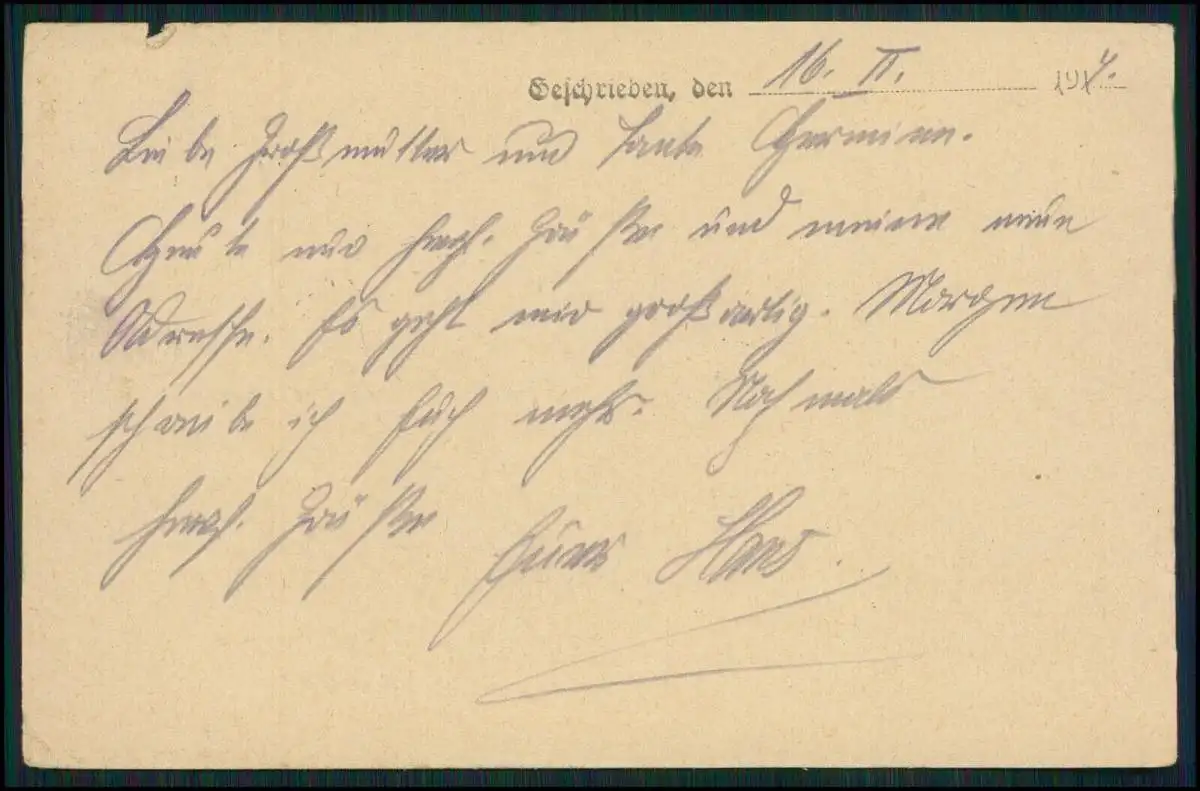 Geschrieben, den 16. II. 1917.
Liebe Großmutter und Tante Hermine.
Heute nur herzl. Grüße und meine neue
Adresse. Es geht mir großartig. Morgen
schreibe ich Euch mehr. Nochmals
herzl. Grüße Euer Hans.